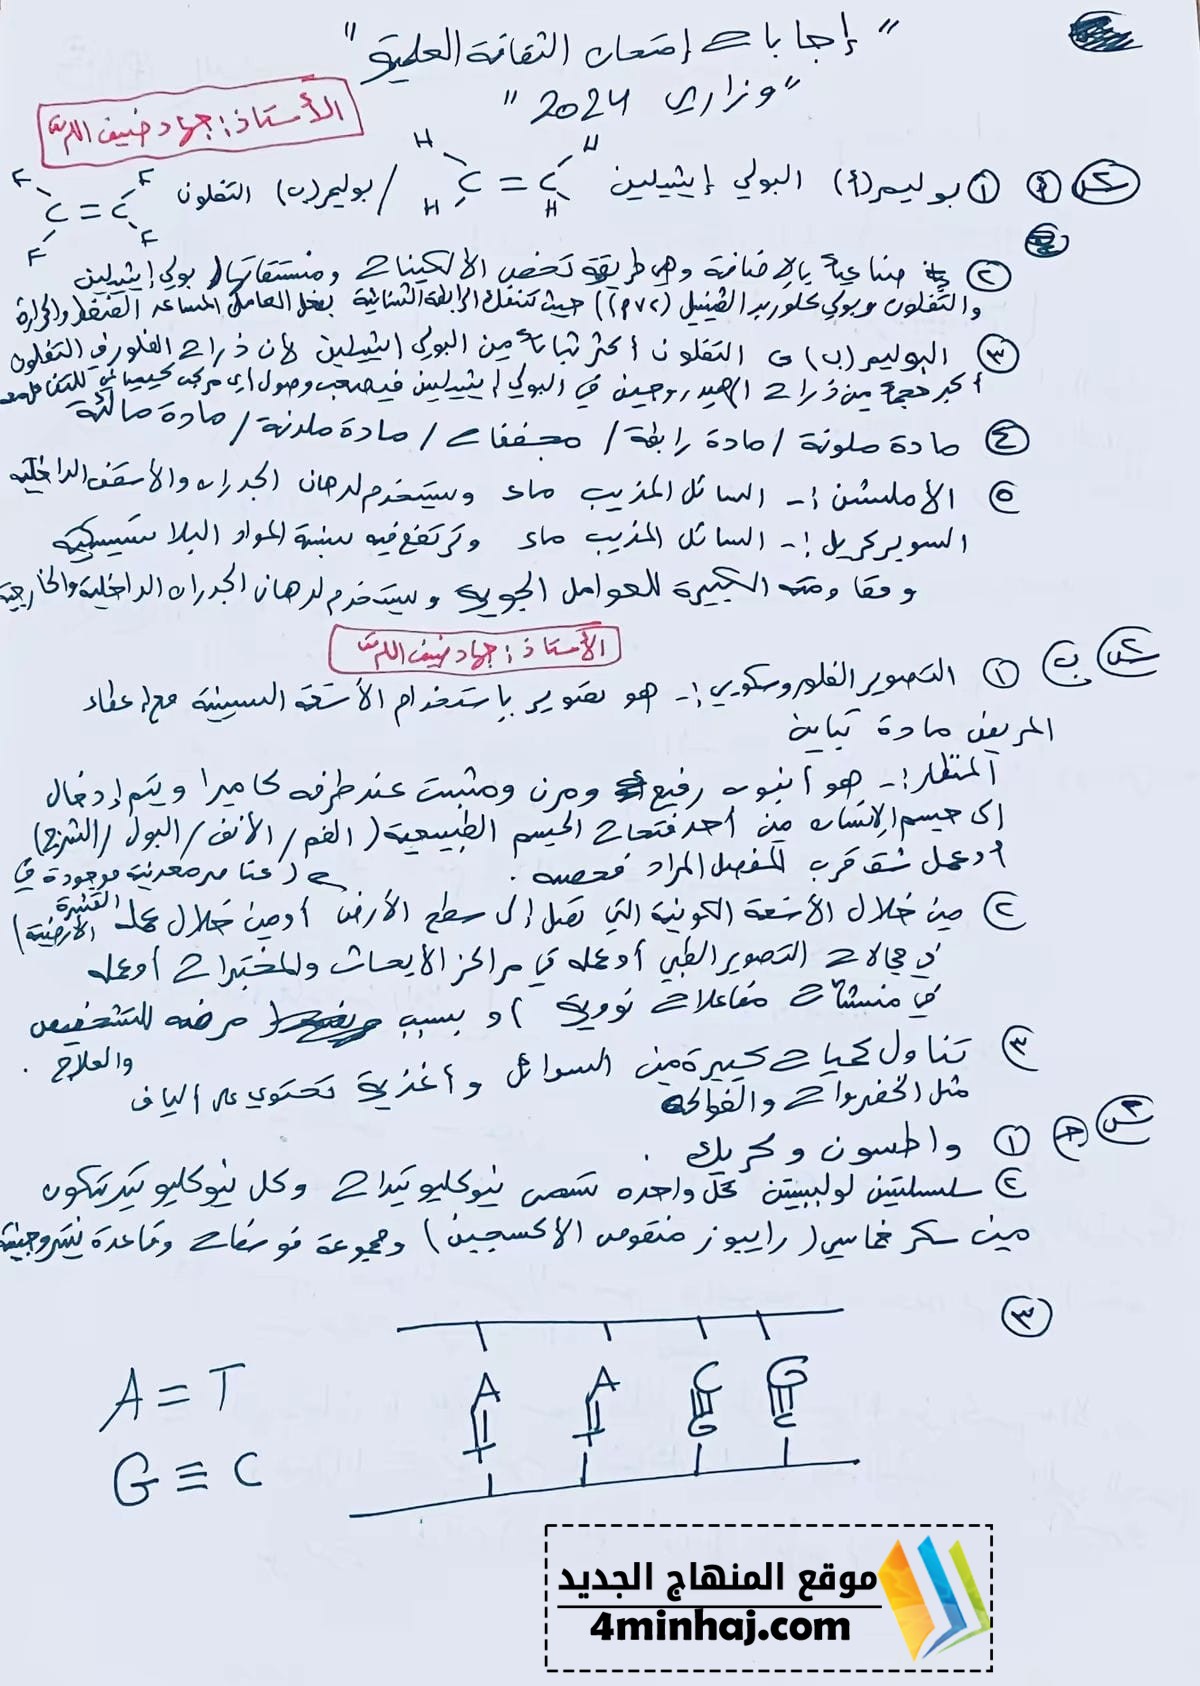 "إجابات إمتحان الثقافة العلمية"
"وزاري 2024"
الأستاذ: جهاد ضيف الله
س٢ أ ① بوليمر(أ) البولي إيثيلين H H C = C H H / بوليمر(ب) التفلون F F C = C F F
② صناعياً بالإضافة وهي طريقة تخص الألكينات ومشتقاتها، بولي إيثيلين
والتفلون وبولي كلوريد الفينيل (PVC) حيث تتفكك الرابطة الثنائية بفعل العامل المساعد الضغط والحرارة
③ البوليمر (ب) التفلون أكثر ثباتاً من البولي ايثيلين لأن ذرات الفلور في التفلون
أكبر حجماً من ذرات الهيدروجين في البولي إيثيلين فيصعب وصول أي مركب كيميائي للتفاعل معه
④ مادة ملونة / مادة رابطة / مجففات / مادة ملدنة / مادة مالئة
⑤ الأملشن :- السائل المذيب ماء ويستخدم لدهان الجدران والأسقف الداخلية
السوبركريل :- السائل المذيب ماء وترتفع فيه نسبة المواد البلاستيكية
ومقاومته الكبيرة للعوامل الجوية ويستخدم لدهان الجدران الداخلية والخارجية
الأستاذ: جهاد ضيف الله
س٢ ب ① التصوير الفلوروسكوبي :- هو تصوير بإستخدام الأشعة السينية مع إعطاء
المريض مادة تباين
المنظار :- هو أنبوب رفيع ومرن ومثبت عند طرفه كاميرا ويتم إدخال
إلى جسم الإنسان من أحد فتحات الجسم الطبيعية (الفم / الأنف / البول / الشرج)
أو عمل شق قرب المفصل المراد فحصه.
② من خلال الأشعة الكونية التي تصل إلى سطح الأرض (عناصر معدنية موجودة في القشرة الأرضية) أو من خلال عمله
في مجالات التصوير الطبي أو عمله في مراكز الأبحاث والمختبرات أو عمله
في منشآت مفاعلات نووية، أو بسبب مرضه للتشخيص
والعلاج.
③ تناول كميات كبيرة من السوائل وأغذية تحتوي على ألياف
مثل الخضروات والفواكه
س٢ ج ① واطسون وكريك.
② سلسلتين لولبيتين كل واحدة تسمى نيوكليوتيدات وكل نيوكليوتيد يتكون
من سكر خماسي (رايبوز منقوص الأكسجين) ومجموعة فوسفات وقاعدة نيتروجينية
③
A A C G
T T G C
A = T
G ≡ C
موقع المنهاج الجديد
4minhaj.com